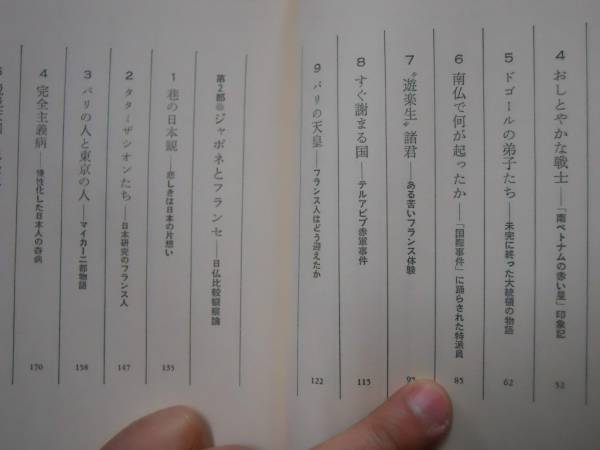 4 おしとやかな戦士──「南ベトナムの赤い星」印象記 52
5 ドゴールの弟子たち──未完に終った大統領の物語 62
6 南仏で何が起ったか──「国際事件」に踊らされた特派員 85
7 “遊楽生”諸君──ある苦いフランス体験
8 すぐ謝まる国──テルアビブ赤軍事件 115
9 パリの天皇──フランス人はどう迎えたか 122
第2部●ジャポネとフランセ──日仏比較観察論
1 巷の日本観──悲しきは日本の片想い 135
2 タターザシオンたち──日本研究のフランス人 147
3 パリの人と東京の人──マイカー二都物語 158
4 完全主義病──慢性化した日本人の奇病 170